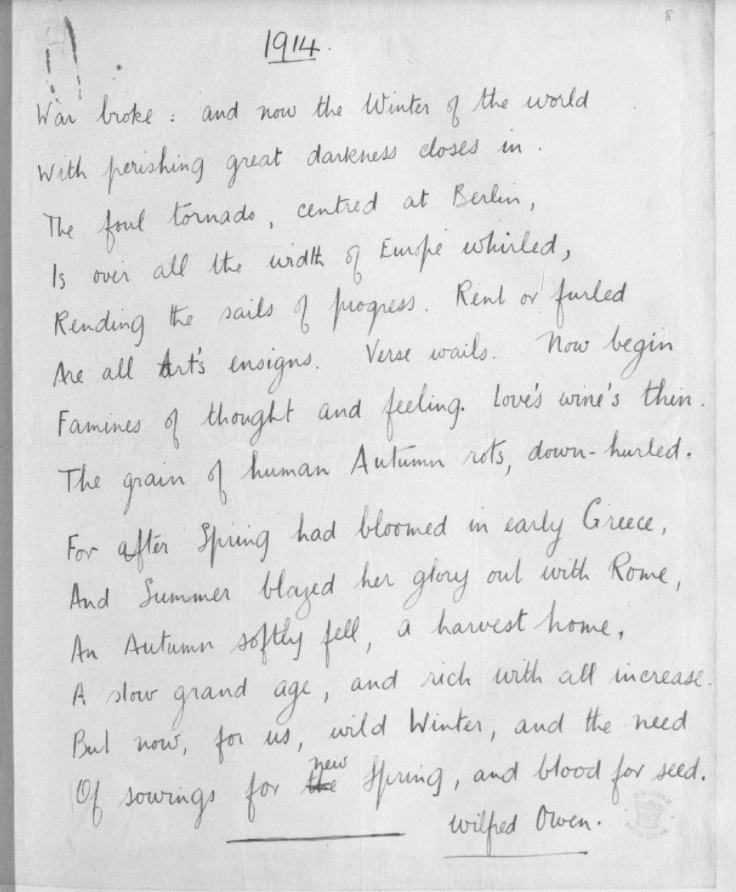 8
1914.
War broke : and now the Winter of the world
With perishing great darkness closes in.
The foul tornado, centred at Berlin,
Is over all the width of Europe whirled,
Rending the sails of progress. Rent or furled
Are all Art's ensigns. Verse wails. Now begin
Famines of thought and feeling. Love's wine's thin.
The grain of human Autumn rots, down-hurled.
For after Spring had bloomed in early Greece,
And Summer blazed her glory out with Rome,
An Autumn softly fell, a harvest home,
A slow grand age, and rich with all increase.
But now, for us, wild Winter, and the need
new
Of sowings for the Spring, and blood for seed.
Wilfred Owen.
BRITISH MUSEUM